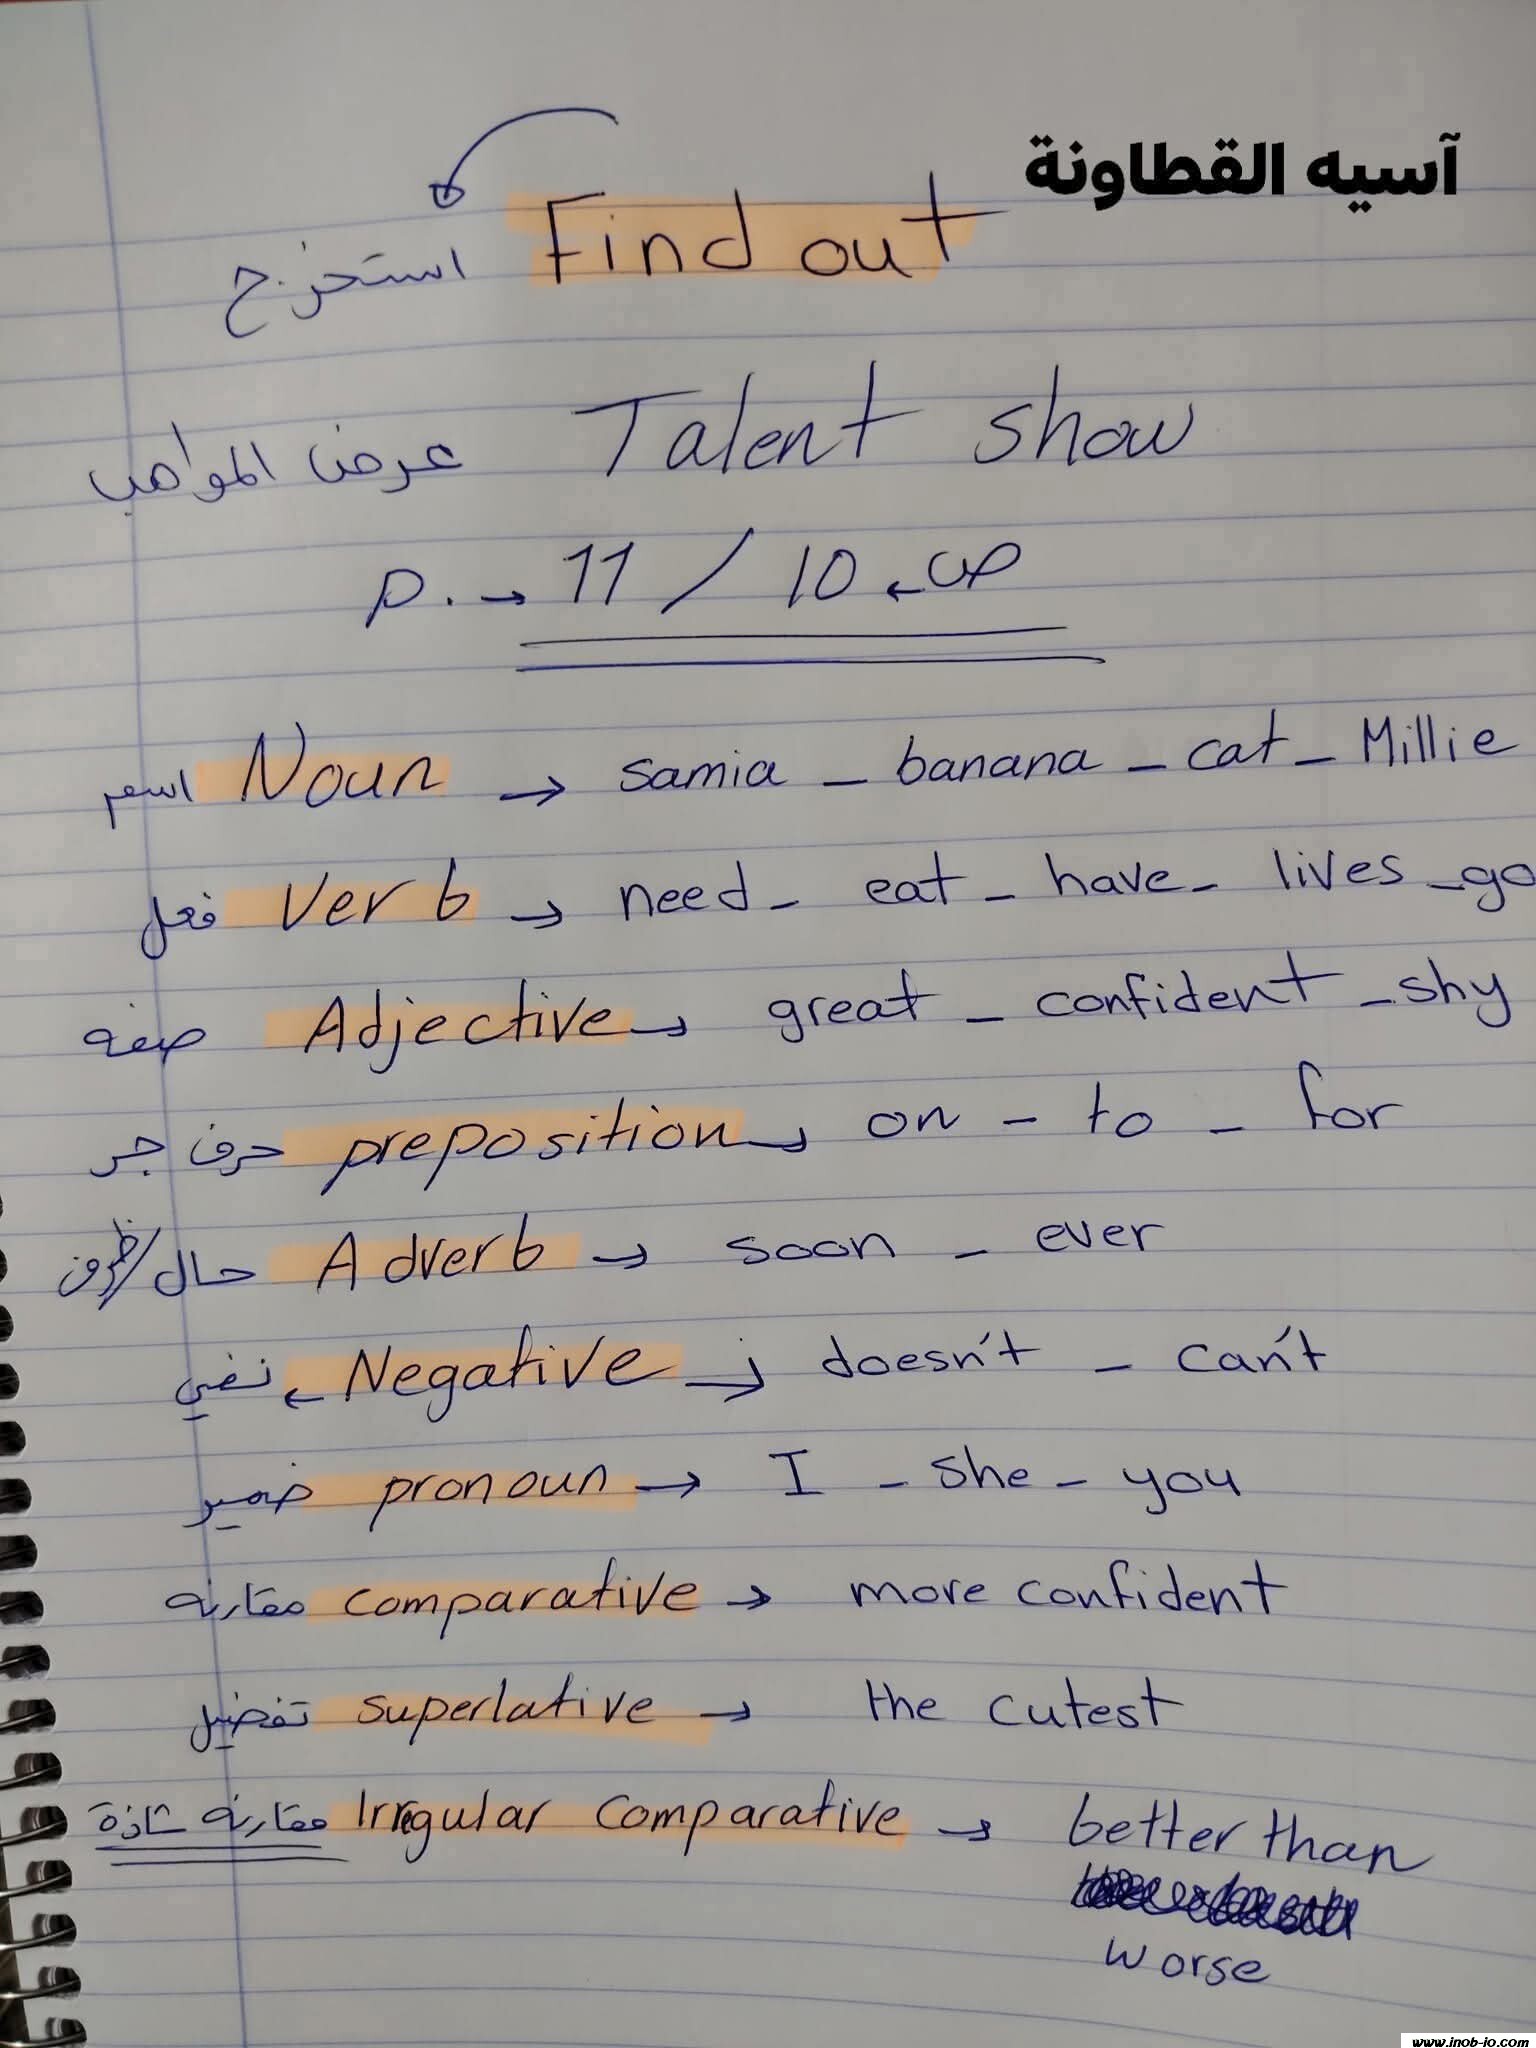 آسيه القطاونة
Find out استخرج
Talent show عرض المواهب
P. → 11 / 10 ← ص
Noun اسم → samia _ banana _ cat _ Millie
Verb فعل → need _ eat _ have _ lives _ go
Adjective صفه → great _ confident _ shy
preposition حرف جر → on _ to _ for
Adverb حال/ظرف → soon _ ever
Negative ← نفي → doesn't _ can't
pronoun ضمير → I _ she _ you
comparative مقارنه → more confident
superlative تفضيل → the cutest
Irregular comparative مقارنه شاذة → better than
worse
www.inob-jo.com